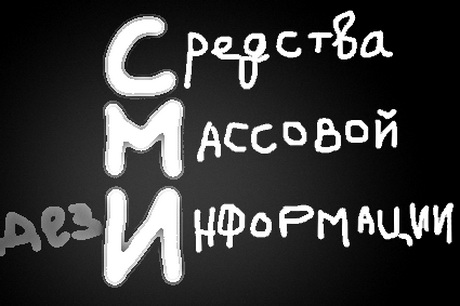 Средства
Массовой
дезИнформации